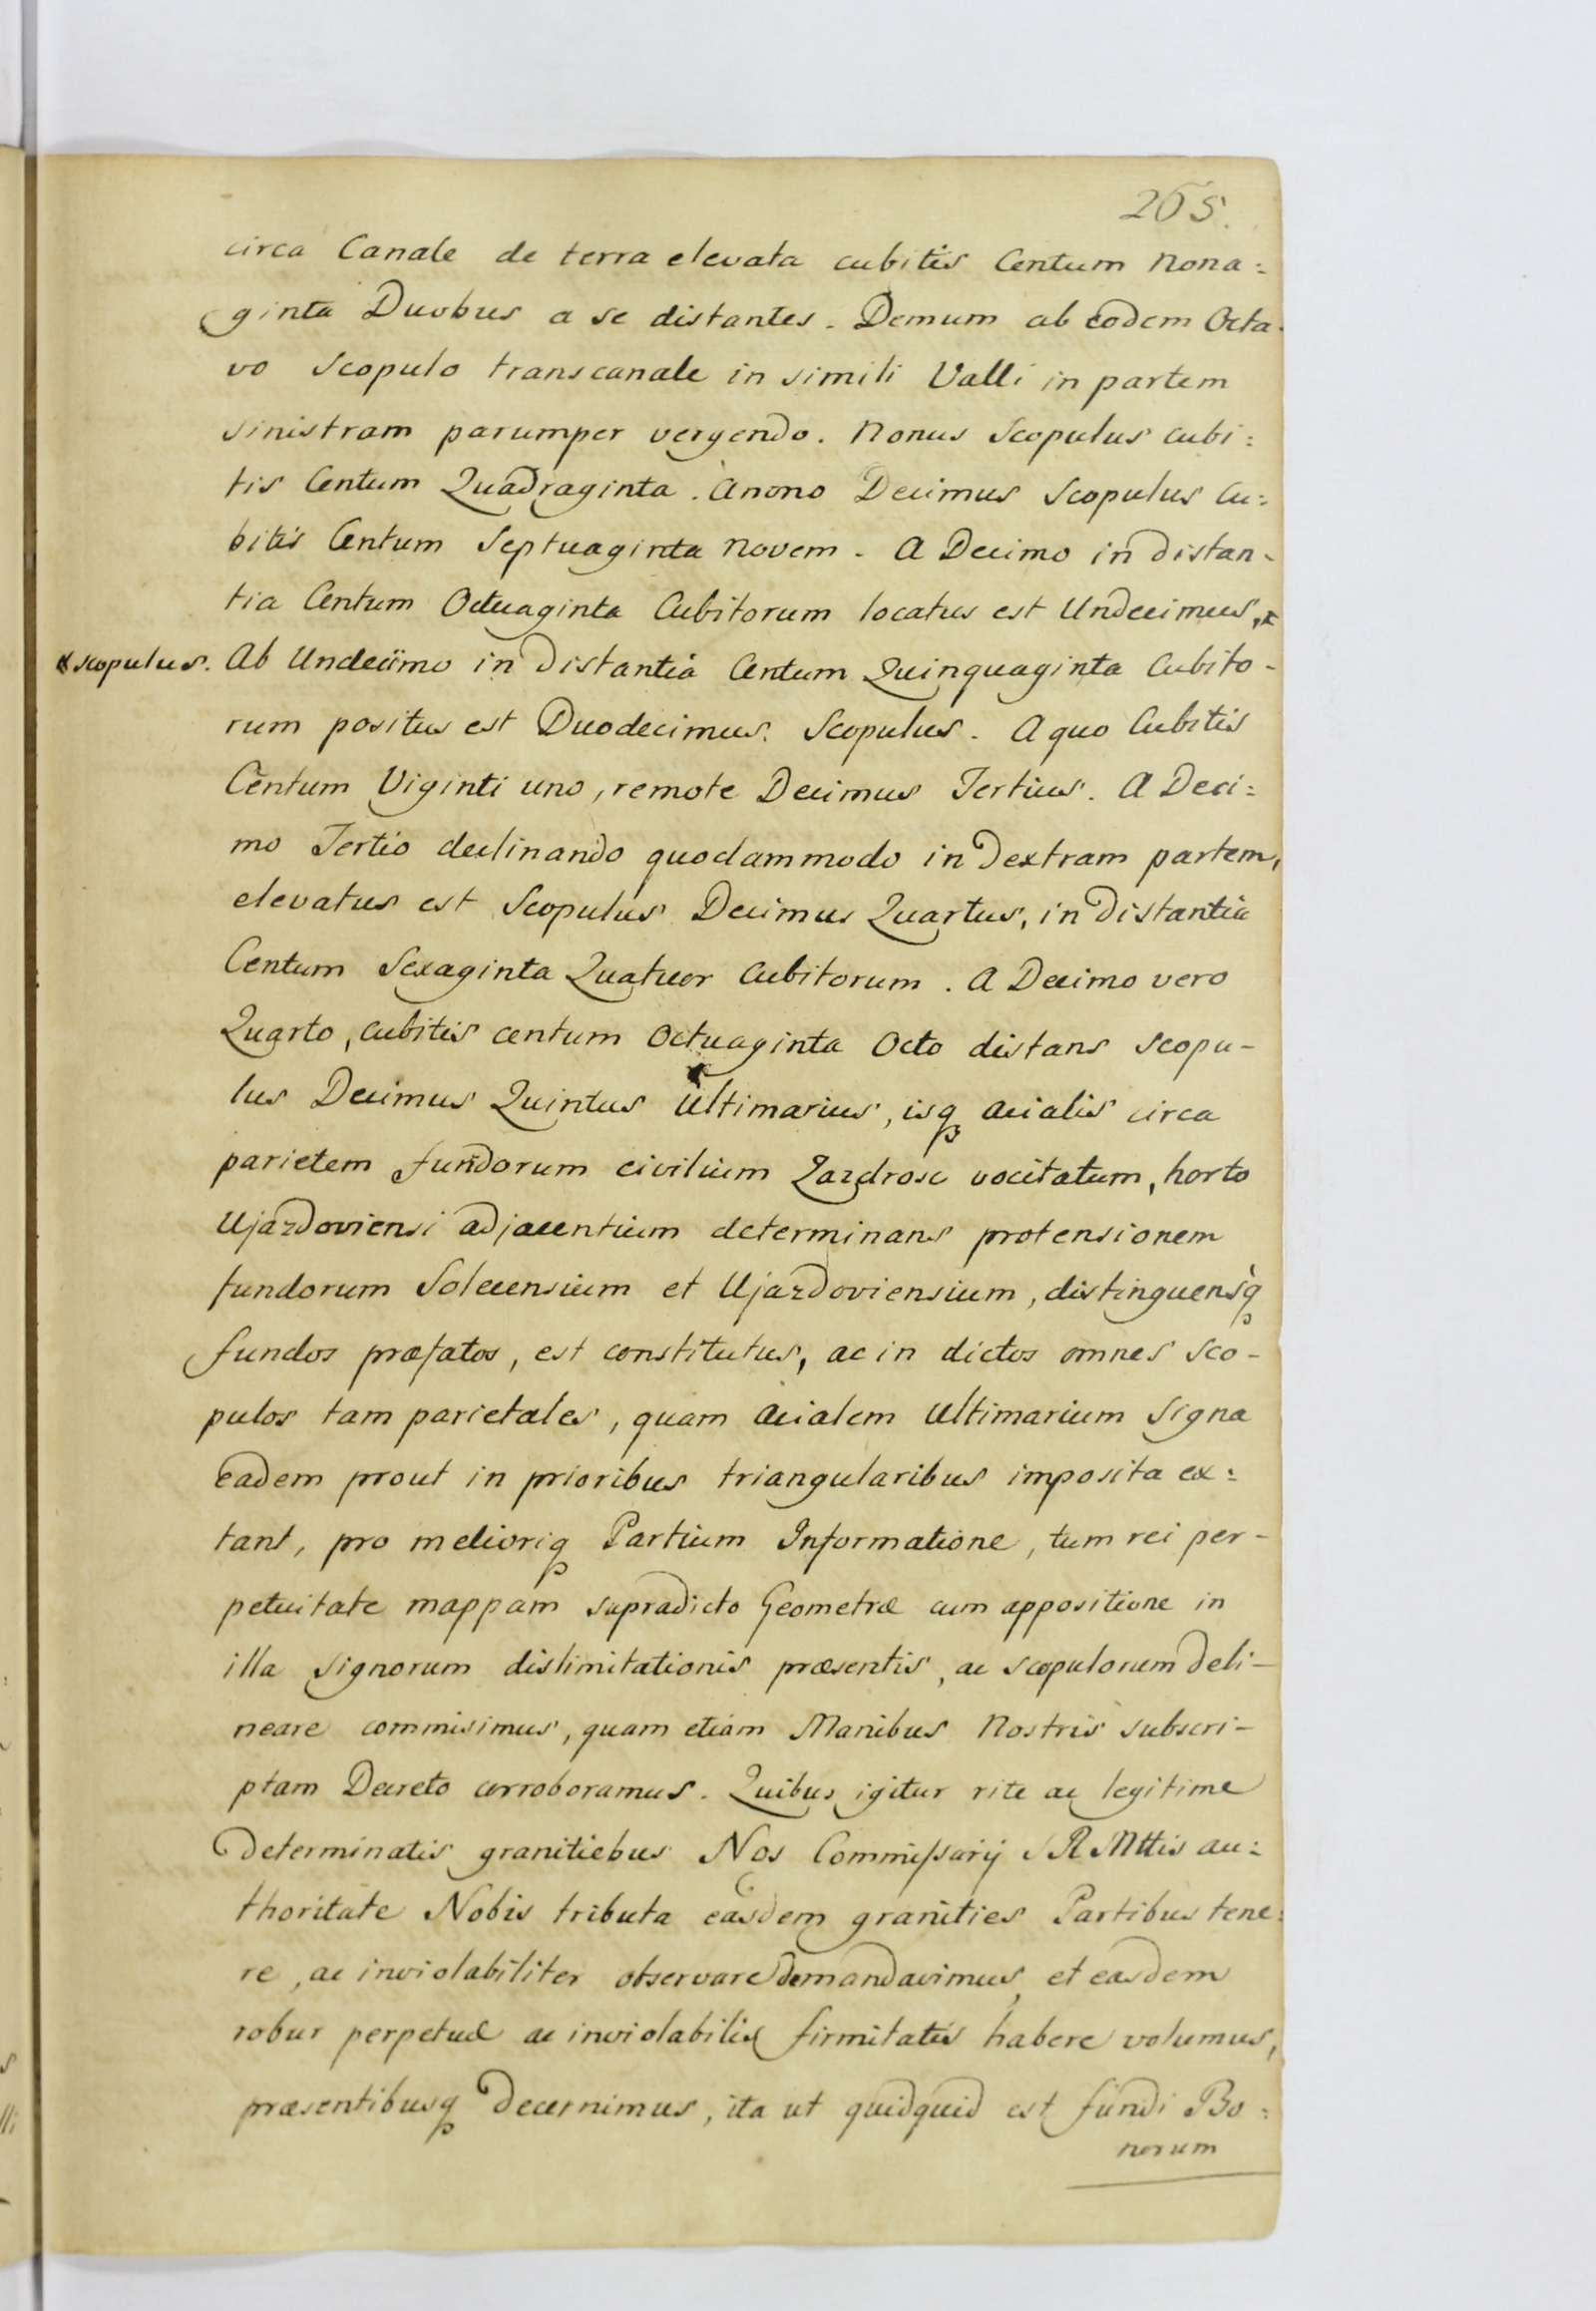 265.
circa Canale de terra elevata cubitis Centum Nona:
ginta Duobus a se distantes. Demum ab eodem Octa-
vo Scopulo transcanale in simili Valli in partem
sinistram parumper vergendo. Nonus Scopulus cubi:
tis Centum Quadraginta. Anono Decimus Scopulus Cu:
bitis Centum Septuaginta Novem. A Decimo in distan-
tia Centum Octuaginta Cubitorum locatus est Undecimus,x
x scopulus. Ab Undecimo in Distantia Centum Quinquaginta Cubito-
rum positus est Duodecimus. Scopulus. A quo Cubitis
Centum Viginti uno, remote Decimus Tertius. A Deci:
mo Tertio declinando quodammodo in Dextram partem,
elevatus est Scopulus Decimus Quartus, in Distantia
Centum Sexaginta Quatuor Cubitorum. A Decimo vero
Quarto, Cubitis centum Octuaginta Octo distans scopu-
lus Decimus Quintus Ultimarius, isq acialis circa
parietem fundorum civilium Zazdrosc vocitatum, horto
Ujazdoviensi adjacentium determinans protensionem
fundorum Solecensium et Ujazdoviensium, distinguensq
fundos præfatos, est constitutus, ac in dictos omnes Sco-
pulos tam parietales, quam Acialem Ultimarium Signa
eadem prout in prioribus triangularibus imposita ex:
tant, pro meliориq Partium Informatione, tum rei per-
petuitate mappam supradicto Geometræ cum appositione in
illa signorum dislimitationis præsentis, ac scopulorum Deli-
neare commisimus, quam etiam Manibus Nostris subscri-
ptam Decreto corroboramus. Quibus igitur rite ac legitime
Determinatis granitiebus Nos Commissarij S R Mttis au:
thoritate Nobis tributa easdem granities Partibus tene:
re, ac inviolabiliter observare demandavimus, et easdem
robur perpetuæ ac inviolabilis firmitatis habere volumus,
præsentibusq Decernimus, ita ut quidquid est fundi Bo:
norum